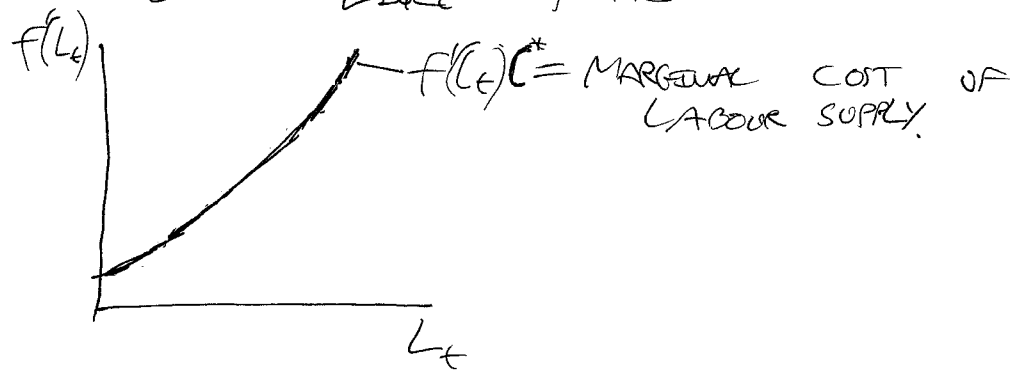 f'(Lₜ)
f'(Lₜ)C* = MARGINAL COST OF
LABOUR SUPPLY.
Lₜ